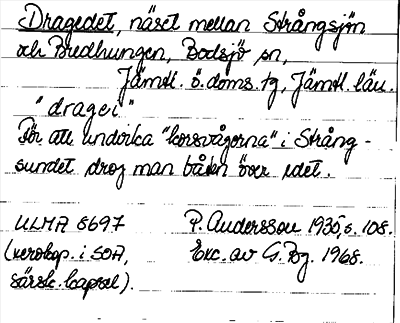 Dragedet, näset mellan Strångsjön
och Bredhungen, Bodsjö sn,
Jämtl. ö. doms. tg, Jämtl. län.
"dragei"
För att undvika "korsvågorna" i Strång-
sundet drog man båten över edet.
ULMA 8697 P. Andersson 1935, s. 108.
(xerokop. i SOA, Exc. av G. Pg. 1968.
särsk. kapsel).